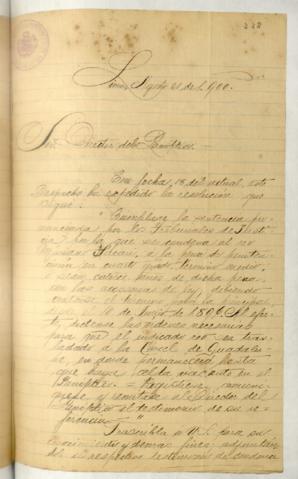 Lima, Agosto 21 de 1,900.
Señor Director del Panóptico.
Con fecha 18 del actual, este
Despacho ha expedido la resolución que
sigue:
"Cúmplase la sentencia pro-
nunciada por los Tribunales de Justi-
cia por la que se condena al reo
á la pena de peniten-
ciaría en cuarto grado, término medio,
ó sean catorce años de dicha pena
con las accesorias de ley, debiendo
contarse el término para la principal
desde el de Mayo de 1896. Al efec-
to, díctense las órdenes necesarias
para que el indicado reo sea tras-
ladado á la Cárcel de Guadalu-
pe, en donde permanecerá hasta
que haya celda vacante en el
Panóptico. = Regístrese, comuní-
quese y remítase al Director del
Panóptico el testimonio de su re-
ferencia."
Trascríbola á US. para su
conocimiento y demás fines, adjuntán-
dole respectivo testimonio de condena